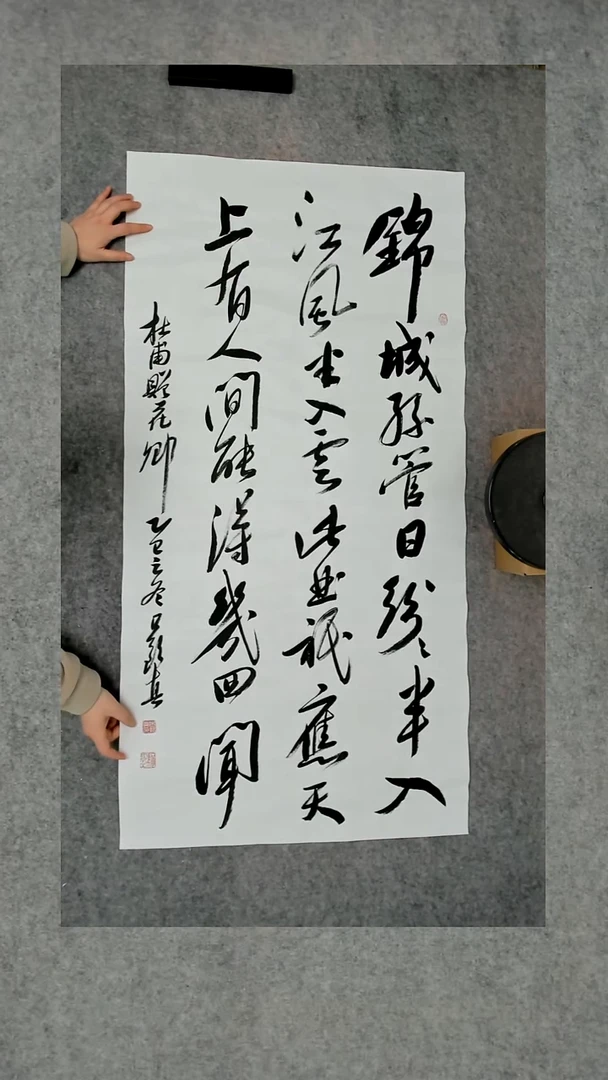 錦城絲管日紛々半入
江風半入雲此曲祇應天
上有人間能得幾回聞
杜甫贈花卿 乙巳立冬